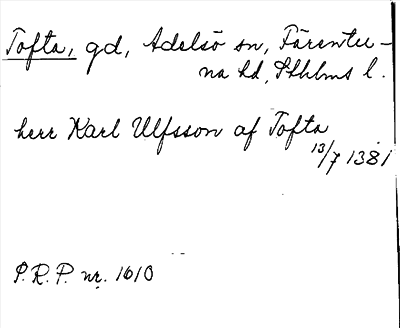 Tofta, gd, Adelsö sn, Färentu-
na hd, Sthlms l.
herr Karl Ulfsson af Tofta
13/7 1381
P.R.P. nr. 1610